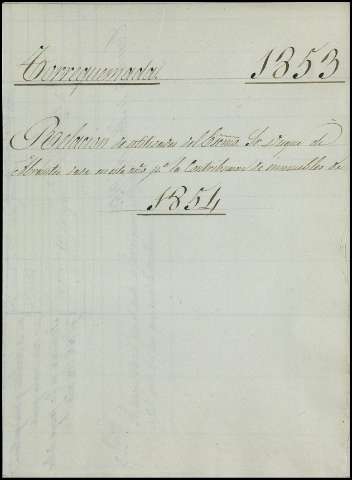 Torrequemada. 1853
Relacion de utilidades del Escmo. Sr. Duque de
Abrantes en este año pª la Contribucion de inmuebles de
1854